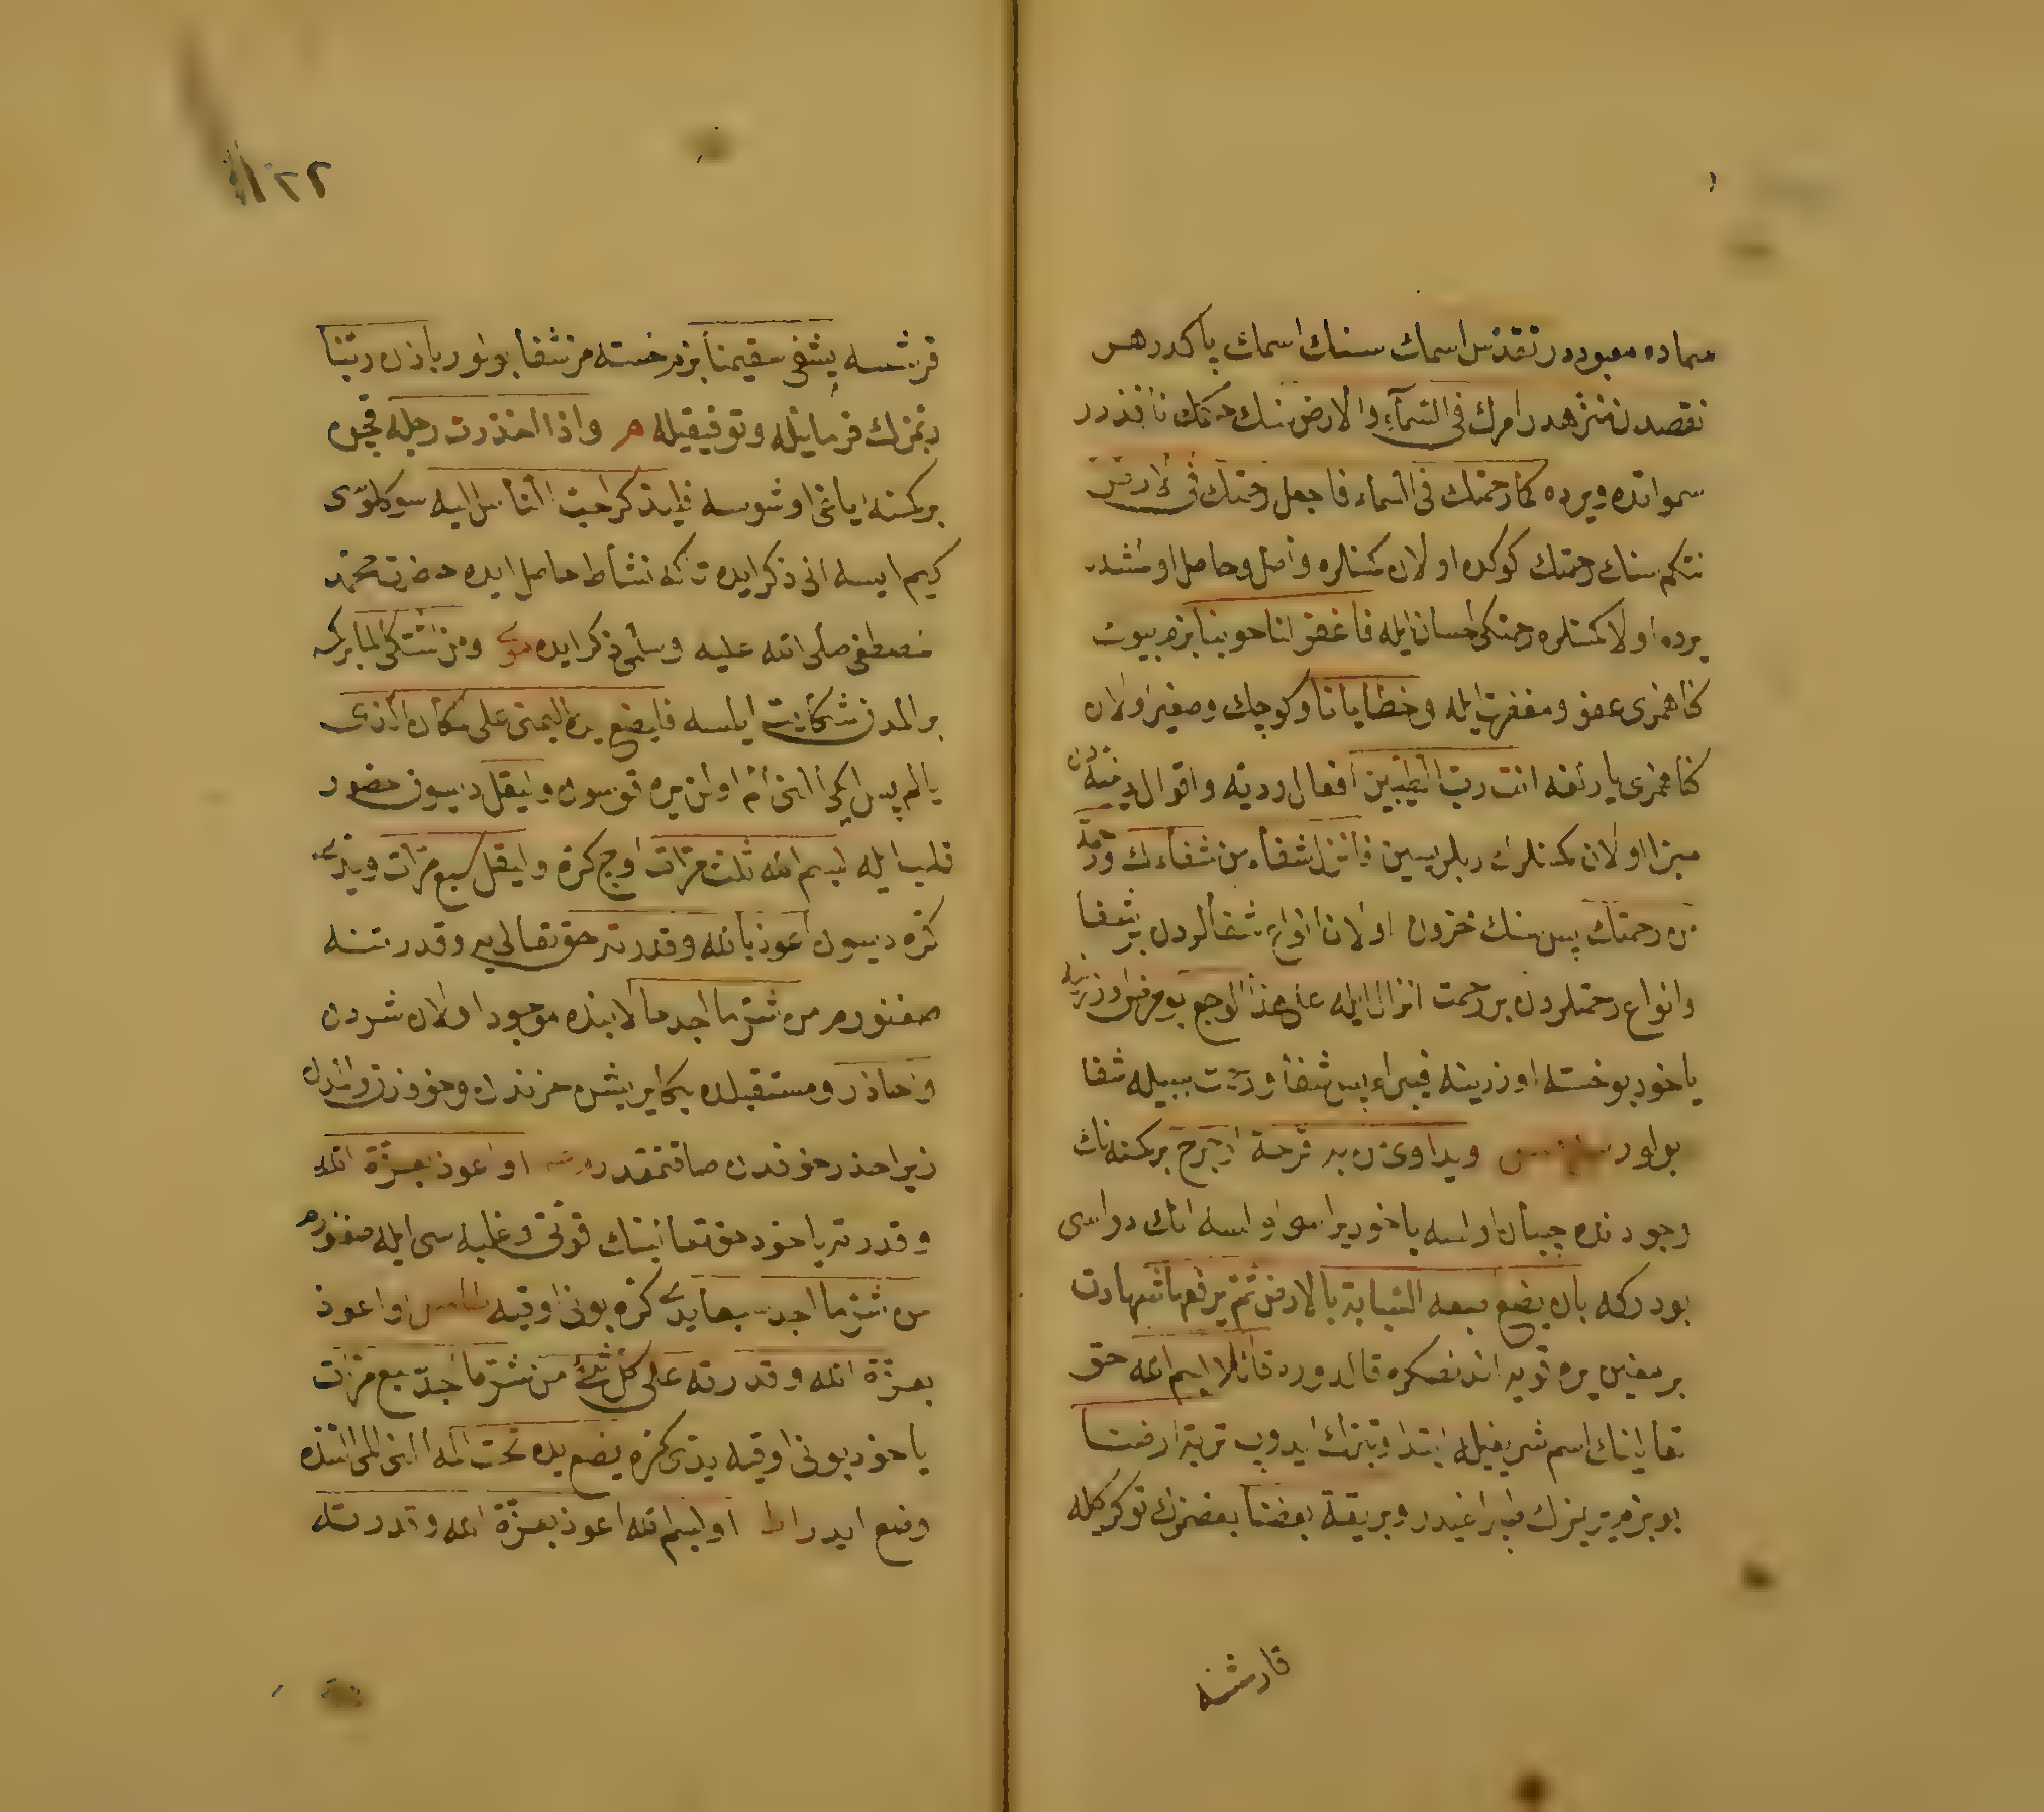 سماده معبوددر تقدس اسمك سنك اسمك پاكدر هر
نقصدن منزهدر امرك فى السماء والارض سنك حكمك نافذدر
سمواتده ويرده كما رحمتك فى السماء فاجعل رحمتك فى الارض
نتكم سنك رحمتك كوكده اولان كمسنلره واصل وحاصل اولمشدر
يرده اولان كمسنلره رحمتكى احسان ايله فاغفر لنا حوبنا بزم بيوك
كناهمزى عفو ومغفرت ايله وخطايانا وكوچك وصغير اولان
كناهمزى يارلغه انت رب الطيبين افعال رديه واقوال دنيه دن
مبرا اولان كمسنلرك ربلريسين فانزل شفاء من شفاءك ورحمة
من رحمتك پس سنك خزون اولان انواع شفالردن بر شفا
وانواع رحمتلردن بر رحمت انزال ايله على هذا الوجع بو مرض اوزرينه
ياخود بو خسته اوزرينه فيبراء پس شفا ورحمت سببيله شفا
بولور ويداوى من به قرحة او جرح بر كمسنه نك
وجودنده چبان اولسه ياخود يراسى اولسه انك دواسى
بودركه بان يضع سبعه السبابة بالارض ثم يرفعها شهادت
برمغين يره قويه اندنصكره قالدوره قائلا بسم الله حق
تعالينك اسم شريفيله ابتدا وتبرك ايدوب تربة ارضنا
بو بزم يريمزك طپراغيدر وبريقة بعضنا بعضمزك توكركيله
قارشنه
١٢٢
قرشسه يشفى سقيمنا بزم خسته مز شفا بولور باذن ربنا
ربمزك فرمانيله وتوفيقيله م واذا اخذرت رجله قچن
بر كمسنه اياغى اوشوسه فليذكر احب الناس اليه سوكلوسى
كيم ايسه انى ذكر ايده تاكه نشاط حاصل ايده حضرت محمد
مصطفى صلى الله عليه وسلمى ذكر ايده ومن اشتكى الما بر كمسه
بر المدن شكايت ايلسه فليضع يده اليمنى على مكان الذى
يالم پس الكى النى الم اولن يره قوسون وليقل ديسون حضور
قلب ايله بسم الله ثلث مرات اوچ كره وليقل سبع مرات ويدى
كره ديسون اعوذ بالله وقدرته حق تعالى يه وقدرتنه
صغنورم من شر ما اجد ما لابنده موجود اولان شردن
واحاذر ومستقبلده بكا ايريشن حزندن وخوفدن
زيرا حذر خوفدن صاقنمقدر او اعوذ بعزة الله
وقدرته ياخود حق تعالينك قوتى وغلبه سى ايله صغنورم
من شر ما اجد سبعا يدى كره بونى اوقيه او اعوذ
بعزة الله وقدرته على كل شئ من شر ما اجد سبع مرات
ياخود بونى اوقيه يدى كره يضع يده تحت المه النى المى التنده
وضع ايدر او بسم الله اعوذ بعزة الله وقدرته